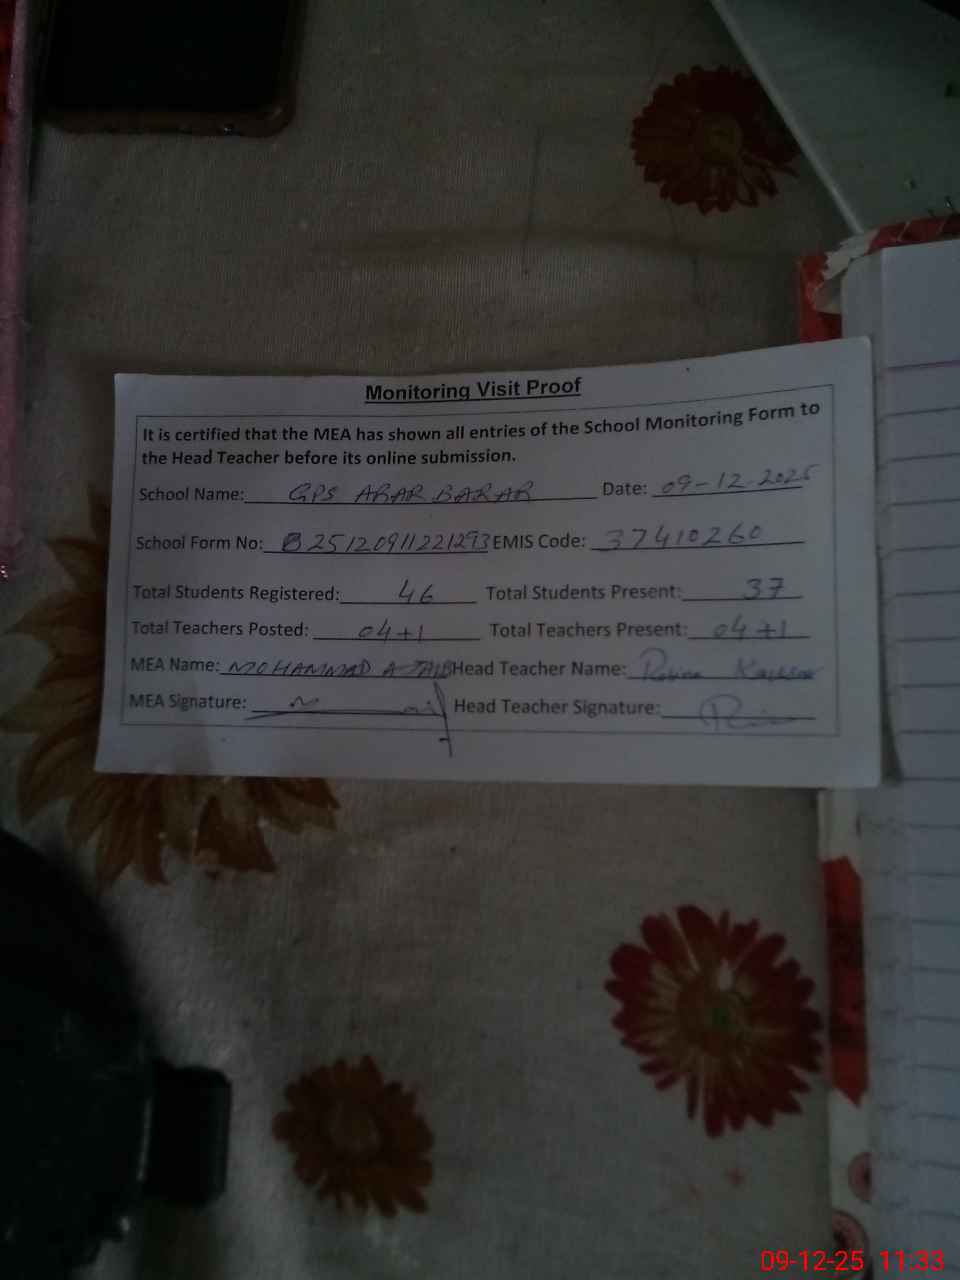 Monitoring Visit Proof
It is certified that the MEA has shown all entries of the School Monitoring Form to
the Head Teacher before its online submission.
School Name: GPS ARAR BARAR Date: 09-12-2025
School Form No: B25120911221293 EMIS Code: 37410260
Total Students Registered: 46 Total Students Present: 37
Total Teachers Posted: 04+1 Total Teachers Present: 04+1
MEA Name: MOHAMMAD AJAIB Head Teacher Name: Robina Kausar
MEA Signature: Head Teacher Signature:
09-12-25 11:33